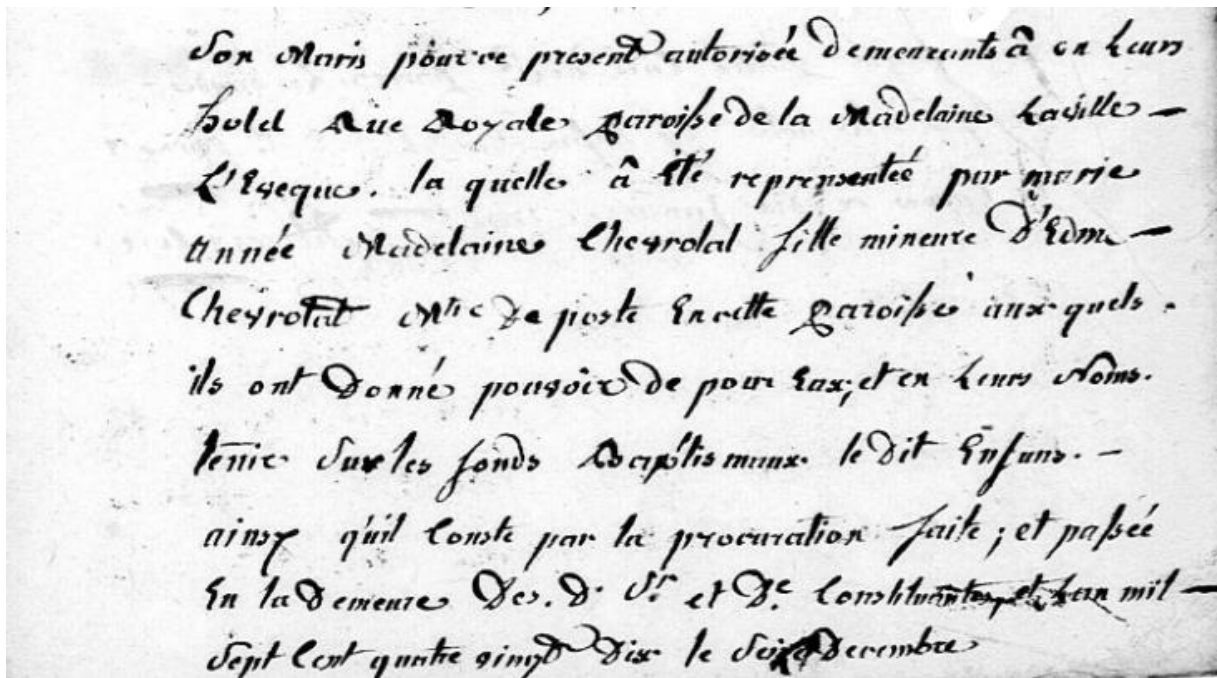 Son Maris pour ce present autorisée Demeurants â en Leurs
hotel Rue Royale paroisse de la Madelaine Laville -
L'Eveque. la quelle â Eté reprensentée par marie
Année Madelaine Chevrolat fille mineure D'Edme -
Chevrolat Mtre De poste En cette paroisse aux quels.
ils ont Donné pouvoir De pour Eux, et en Leurs Noms.
tenir Sur les fonds Baptismaux le Dit Enfans. -
ainsy qu'il Conste par la procuration faite ; et passée
En la Demeure Des. D. Sr. et De. Constituantes, et Lan mil -
Sept Cent quatre vingt Dix le Seize Decembre